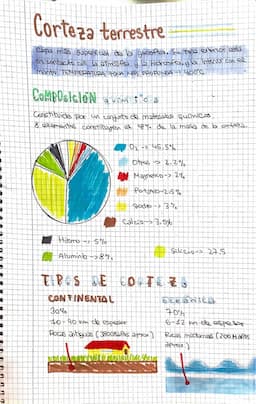 Corteza terrestre
Capa más superficial de la Geosfera. Su parte exterior está
en contacto con la atmósfera y la hidrosfera, y la interior con el
manto. TEMPERATURA
COMPOSICIÓN QUÍMICA
Constituida por un conjunto de materiales químicos
8 elementos constituyen el 98% de la masa de la corteza.
O₂ → 46.5%
Otros → 2.2%
Magnesio → 2%
Potasio → 2.5%
Sodio → 3%
Calcio → 3.5%
Hierro → 5%
Aluminio → 8%
Silicio → 27.5
TIPOS DE CORTEZA
CONTINENTAL
OCEÁNICA
30%
70%
10-70 km de espesor
6-12 km de espesor
Rocas antiguas
Rocas modernas